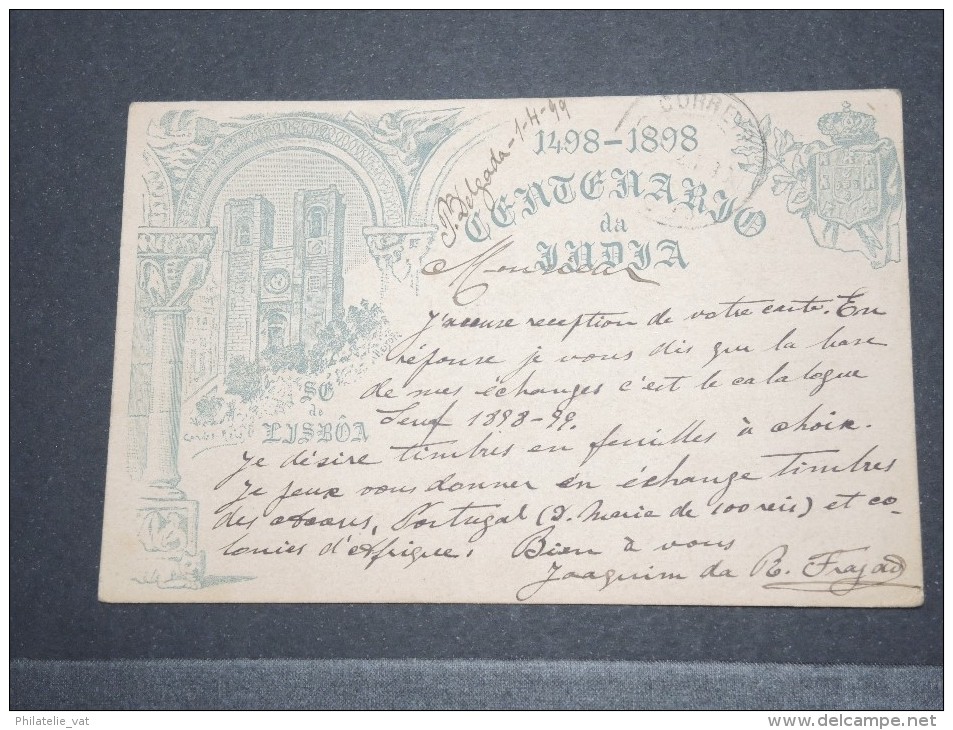 CORRE
P. Delgada - 1-4-99
1498-1898
CENTENARIO
da
INDIA
Monsieur
J'accuse reception de votre carte. En
réponse je vous dis que la base
de mes échanges c'est le catalogue
Senf 1898-99.
Je désire timbres en feuilles à choix.
Je peux vous donner en échange timbres
des Açores, Portugal (D. Marie de 100 reis) et co-
lonies d'Afrique. Bien à vous
Joaquim da R.
SÉ
de
LISBÔA
Philatelie_vat
http://www.delcampe.net